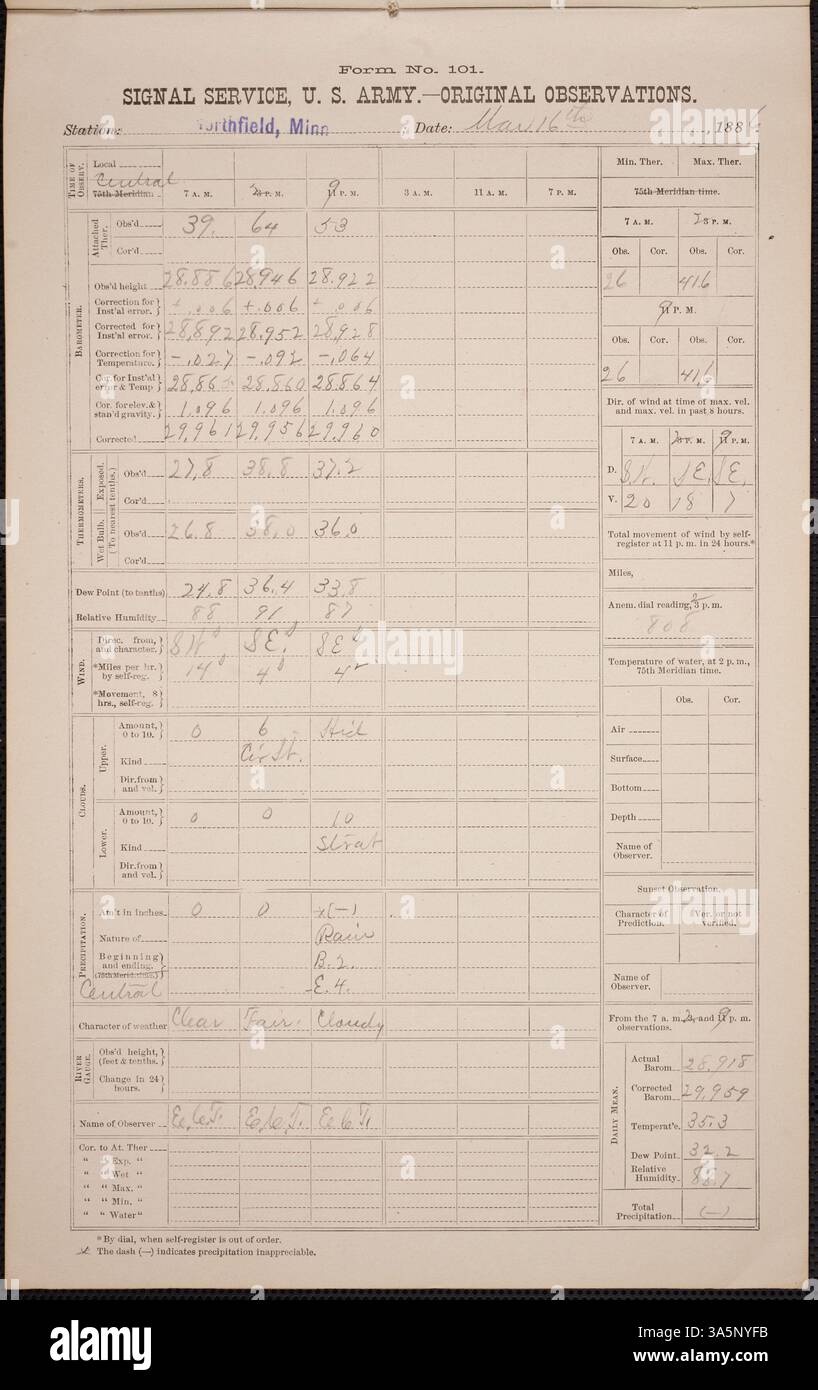 Form No. 101.
SIGNAL SERVICE, U. S. ARMY.—ORIGINAL OBSERVATIONS.
Station: Northfield, Minn Date: Mar 16th, 1886
TIME OF OBSERV.
Local
Central
75th Meridian 7 A. M. 2 P. M. 9 P. M. 3 A. M. 11 A. M. 7 P. M.
Attached Ther.
Obs'd 39. 64 53
Cor'd
BAROMETER.
Obs'd height 28.886 28.946 28.922
Correction for Inst'al error. +.006 +.006 +.006
Corrected for Inst'al error. 28.892 28.952 28.928
Correction for Temperature. -.027 -.092 -.064
Cor. for Inst'al error & Temp 28.865 28.860 28.864
Cor. for elev. & stan'd gravity. 1.096 1.096 1.096
Corrected 29.961 29.956 29.960
THERMOMETERS.
Exposed. (To nearest tenths.)
Obs'd 27.8 38.8 37.2
Cor'd
Wet Bulb.
Obs'd 26.8 38.0 36.0
Cor'd
Dew Point (to tenths) 24.8 36.4 33.8
Relative Humidity 88 91 87
WIND.
Direc. from, and character. S W. S E. S E
*Miles per hr. by self-reg. 14 4 4
*Movement, 8 hrs., self-reg.
CLOUDS.
Upper.
Amount, 0 to 10. 0 6 Hid
Kind Cir St.
Dir. from and vel.
Lower.
Amount, 0 to 10. 0 0 10
Kind Strat
Dir. from and vel.
PRECIPITATION.
Am't in inches 0 0 *(—)
Nature of Rain
Beginning and ending. B. 2.
(75th Merid. time.) E. 4.
Central
Character of weather Clear Fair. Cloudy
RIVER GAUGE.
Obs'd height, (feet & tenths.)
Change in 24 hours.
Name of Observer E.C.T. E.C.T. E.C.T.
Cor. to At. Ther
" " Exp. "
" " Wet "
" " Max. "
" " Min. "
" " Water"
*By dial, when self-register is out of order.
* The dash (—) indicates precipitation inappreciable.
Min. Ther. Max. Ther.
75th Meridian time.
7 A. M. 2 P. M.
Obs. Cor. Obs. Cor.
26 41.6
9 P. M.
Obs. Cor. Obs. Cor.
26 41.6
Dir. of wind at time of max. vel. and max. vel. in past 8 hours.
7 A. M. 2 P. M. 9 P. M.
D. S W. S E. S E.
V. 20 18 7
Total movement of wind by self-register at 11 p. m. in 24 hours.*
Miles,
Anem. dial reading, 2 p. m.
808
Temperature of water, at 2 p. m., 75th Meridian time.
Obs. Cor.
Air
Surface
Bottom
Depth
Name of Observer.
Sunset Observation.
Character of Prediction. Ver. or not verified.
Name of Observer.
From the 7 a. m., 2, and 9 p. m. observations.
DAILY MEAN.
Actual Barom. 28.918
Corrected Barom. 29.959
Temperat'e. 35.3
Dew Point 32.2
Relative Humidity. 88.7
Total Precipitation (—)
alamy
Image ID: 3A5NYFB
www.alamy.com